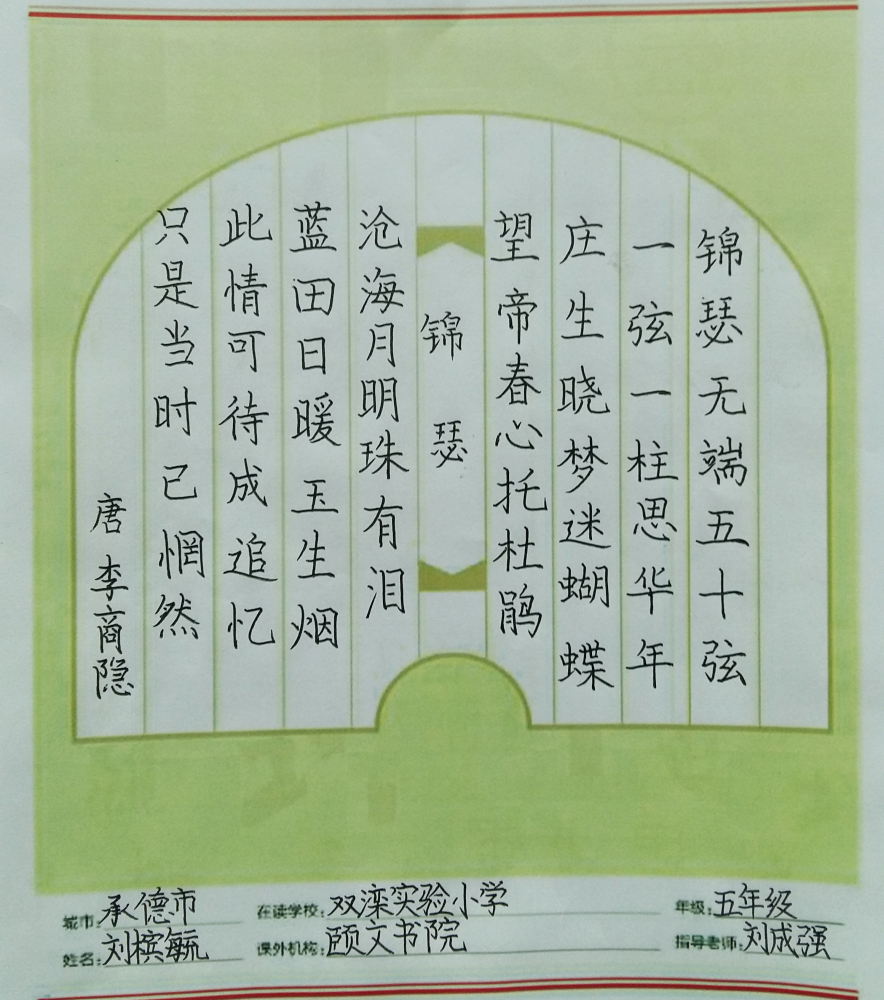 锦瑟无端五十弦
一弦一柱思华年
庄生晓梦迷蝴蝶
望帝春心托杜鹃
锦瑟
沧海月明珠有泪
蓝田日暖玉生烟
此情可待成追忆
只是当时已惘然
唐 李商隐
城市:承德市 在读学校:双滦实验小学 年级:五年级
姓名:刘槟毓 课外机构:颐文书院 指导老师:刘成强